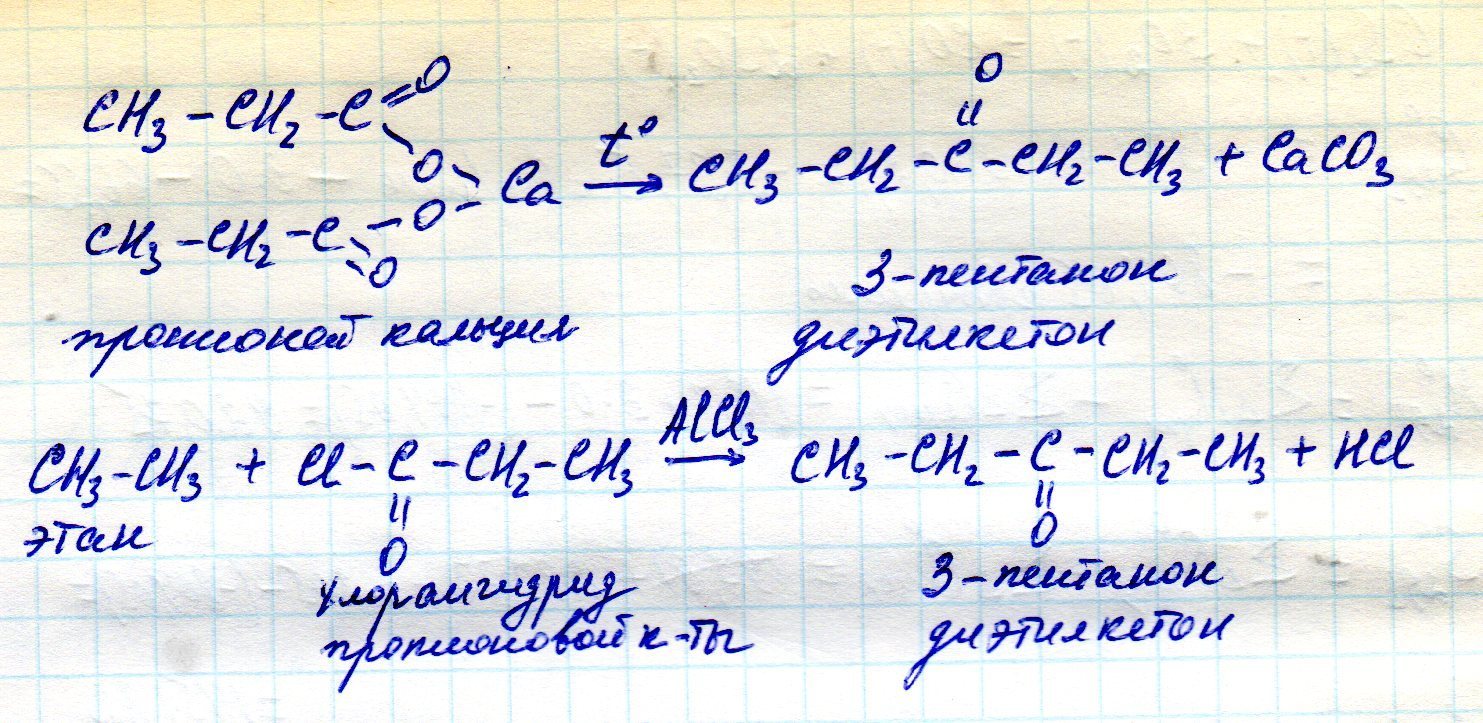 CH₃-CH₂-C=O
O-
Ca
CH₃-CH₂-C-O-
=O
t°
→ CH₃-CH₂-C-CH₂-CH₃ + CaCO₃
O
=
пропионат кальция
3-пентанон
диэтилкетон
AlCl₃
CH₃-CH₃ + Cl-C-CH₂-CH₃ → CH₃-CH₂-C-CH₂-CH₃ + HCl
=
O
=
O
этан
хлорангидрид
пропионовой к-ты
3-пентанон
диэтилкетон